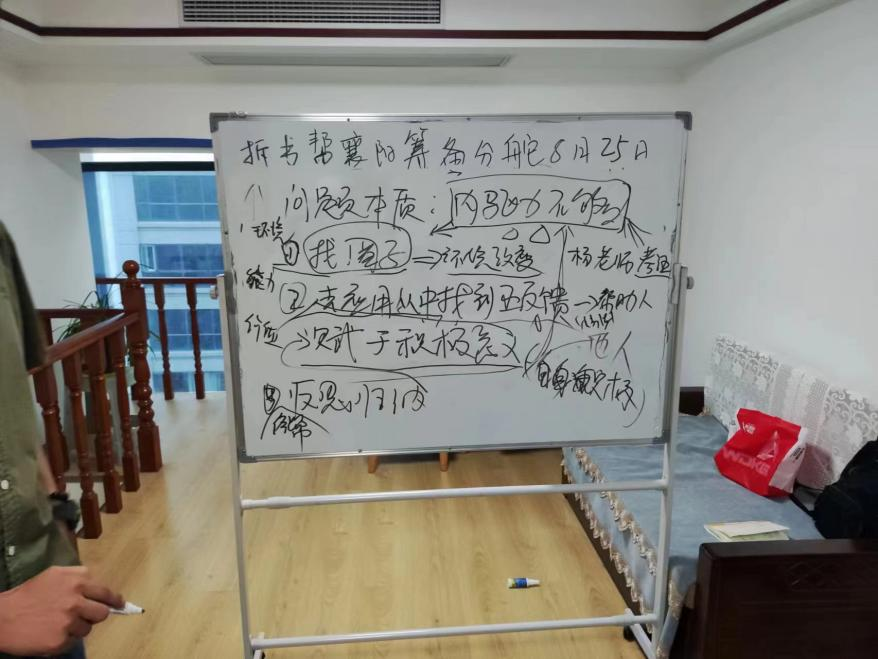 拆书帮襄阳筹备分舵8月25日
个 问题本质:内驱力不够
环境 ① 找圈子⇒环境改变 杨老师
能力 ②去应用从中找到正反馈→帮助人
行为 →赋予积极意义 他人
③反思、归纳